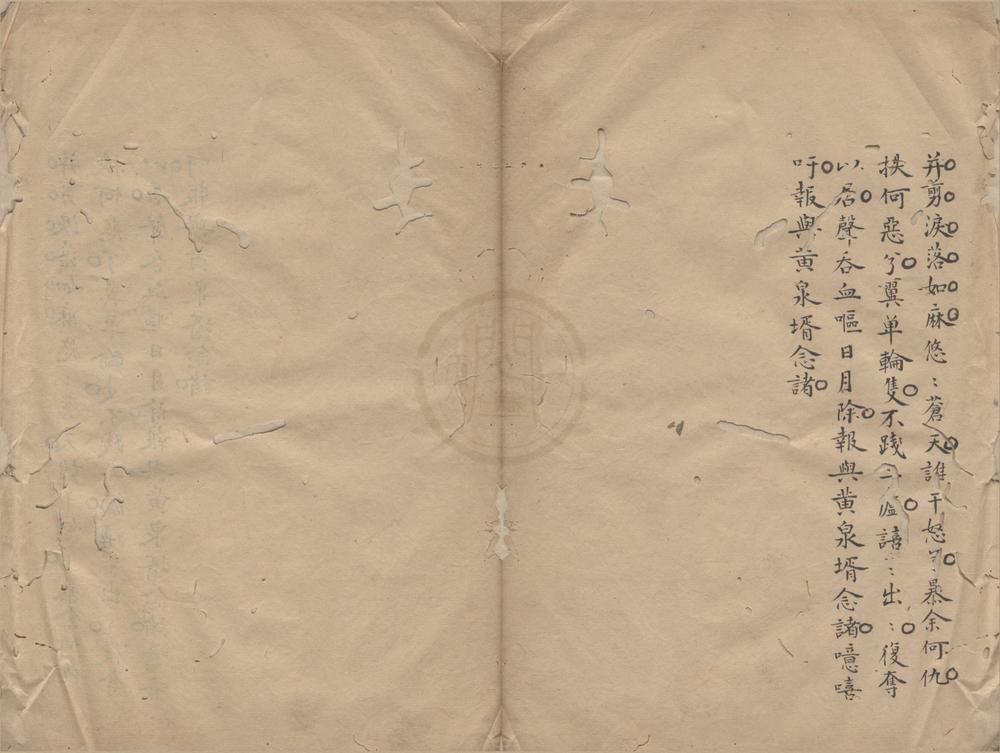 并剪淚落如麻悠〻蒼天誰干怒兮暴余何仇
扶何惡兮翼单輪隻不踐二嘻〻出〻復奪
以居聲吞血嘔日月除報與黄泉壻念諸噫嘻
吁報與黄泉壻念諸